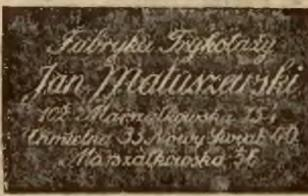 Fabryka Trykotaży
Jan Matuszewski
Marszałkowska
Chmielna 33 Nowy Świat
Marszałkowska